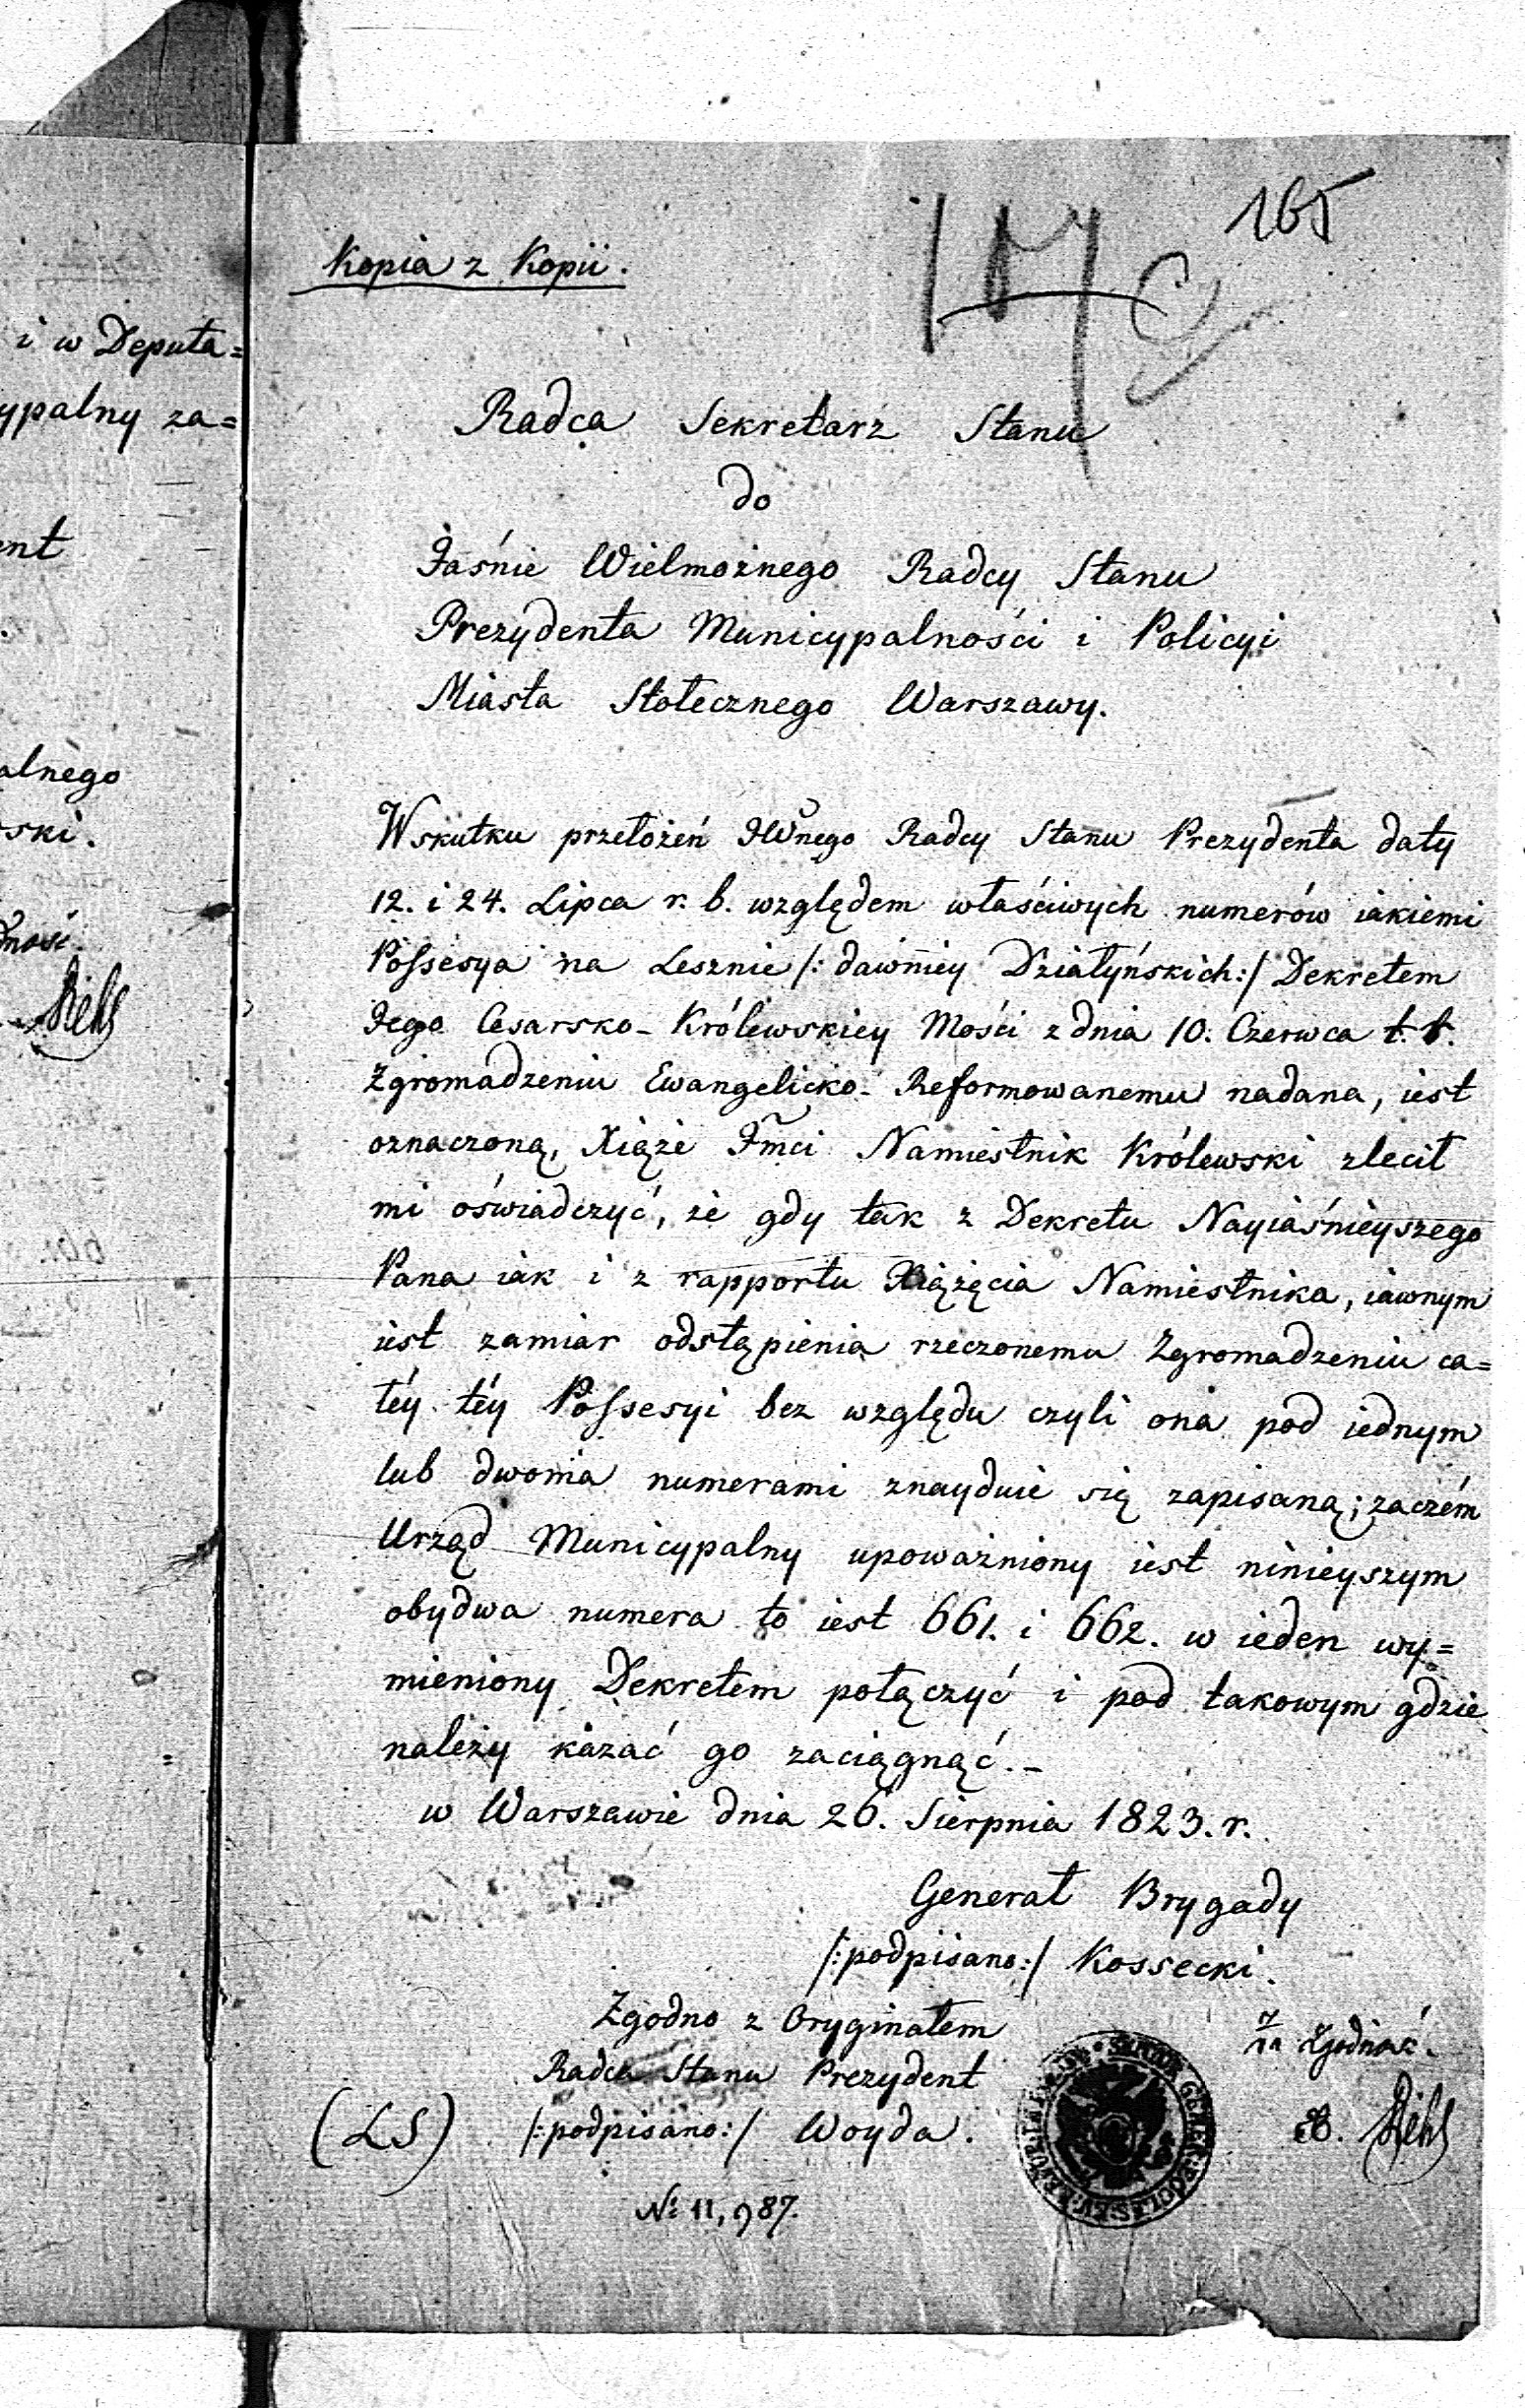 i w Deputa=
ypalny za=
ent
alnego
ski.
dność.
Diehl
165
Kopia z Kopii.
Radca Sekretarz Stanu
do
Jaśnie Wielmożnego Radcy Stanu
Prezydenta Municypalności i Policyi
Miasta Stołecznego Warszawy.
Wskutku przełożeń JWnego Radcy Stanu Prezydenta daty
12. i 24. Lipca r. b. względem właściwych numerów iakiemi
Possesya na Lesznie /: dawniey Działyńskich:/ Dekretem
Jego Cesarsko-Królewskiey Mości z dnia 10. Czerwca t. r.
Zgromadzeniu Ewangelicko-Reformowanemu nadana, iest
oznaczoną, Xiąże Jmci Namiestnik Królewski zlecił
mi oświadczyć, że gdy tak z Dekretu Nayiaśnieyszego
Pana iak i z rapportu Xiążęcia Namiestnika, iawnym
iest zamiar odstąpienia rzeczonemu Zgromadzeniu ca=
łéy téy Possesyi bez względu czyli ona pod iednym
lub dwoma numerami znayduie się zapisaną; zaczém
Urząd Municypalny upoważniony iest ninieyszym
obydwa numera to iest 661. i 662. w ieden wy=
mieniony Dekretem połączyć i pod takowym gdzie
należy kazać go zaciągnąć.-
w Warszawie dnia 26. Sierpnia 1823. r.
Generał Brygady
/:podpisano:/ Kossecki.
Zgodno z Oryginałem
Radca Stanu Prezydent
(LS) /:podpisano:/ Woyda.
Za Zgodność.
Diehl
№ 11,987.